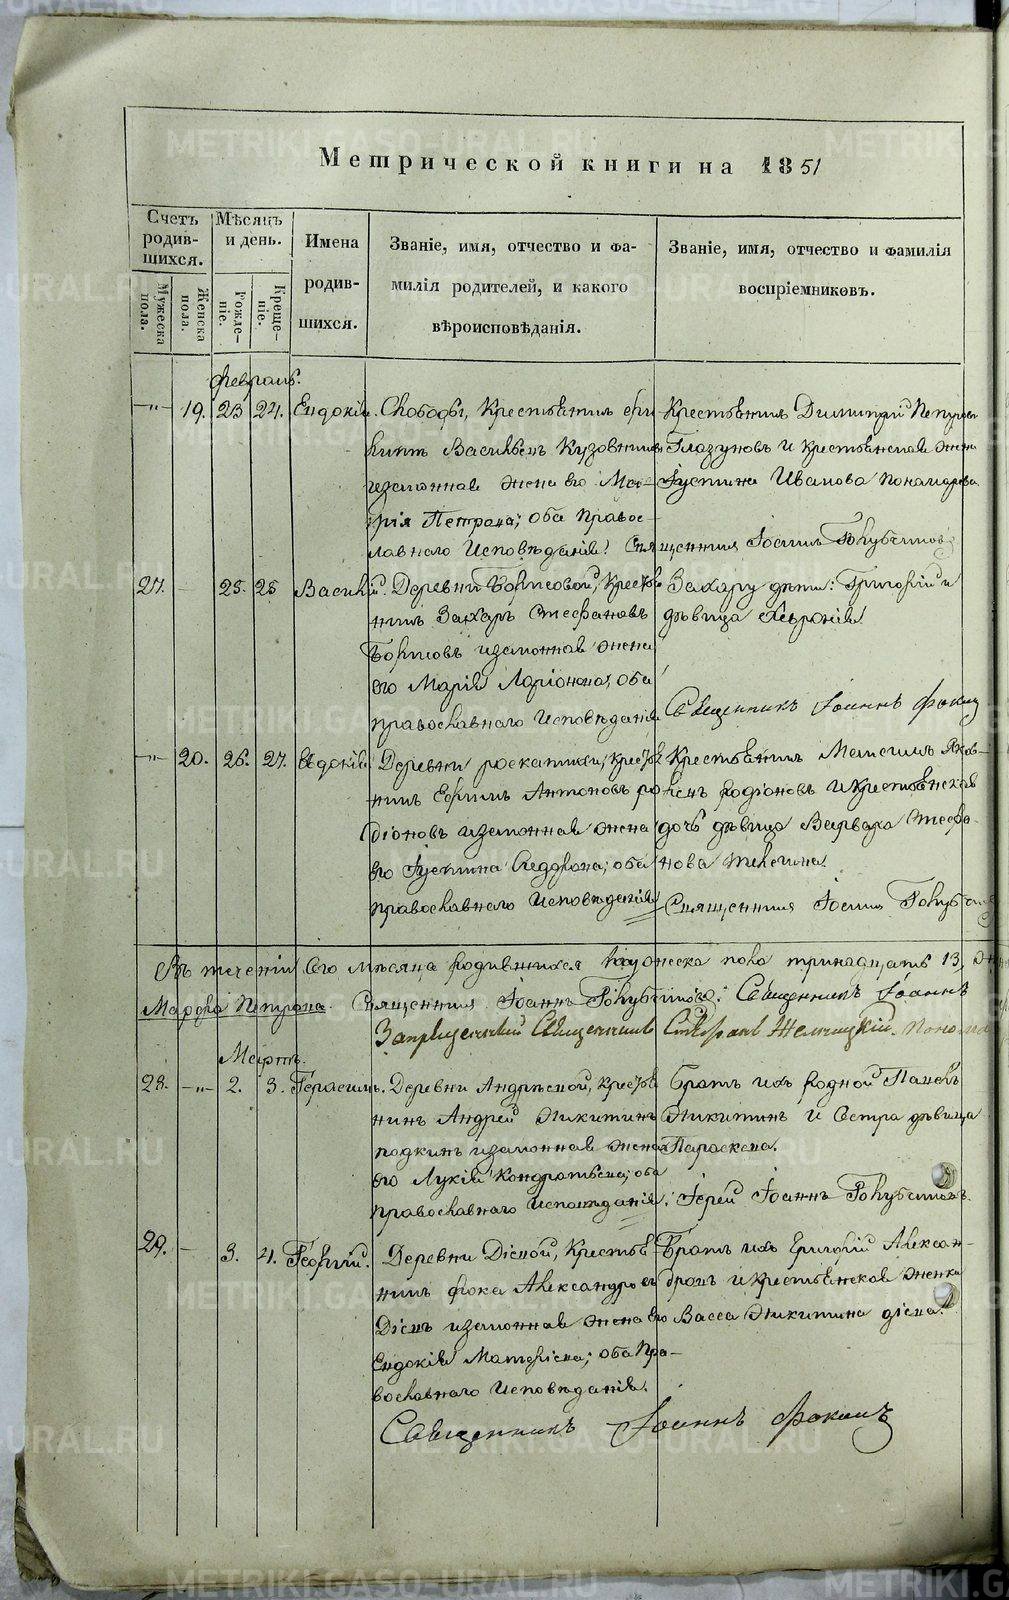 Метрической книги на 1851
Счетъ родив-шихся.
Мѣсяцъ и день.
Имена родив-шихся.
Званіе, имя, отчество и фа-милія родителей, и какого вѣроисповѣданія.
Званіе, имя, отчество и фамилія воспріемниковъ.
Мужеска пола.
Женска пола.
Рожде-ніе.
Креще-ніе.
февраль.
19. 23 24. Евдокія. Слободы, Крестьянинъ
Васильевъ Кузовниковъ
законная жена его Ма-
рія Петрова; оба Правос-
лавнаго Исповѣданія!
Крестьянинъ Димитрій Петровъ
Глазуновъ и крестьянская жена
Іустина Иванова Пономарева
Священникъ Іоаннъ Голубчиковъ
27. 25. 25 Василій. Деревни Борисовой, Кресть
нинъ Захаръ Стефановъ
Борисовъ изаконная жена
его Марія Ларіонова, оба
православнаго Исповѣданія
Захару дѣти: Григорій и
дѣвица Хевронія.
Священникъ Іоаннъ Фокинъ
20. 26. 27. Евдокія Деревни роскатихи, крестья
нинъ Ефимъ Антоновъ ро
діоновъ изаконная жена
его Іустина Сидорова; оба
православнаго Исповѣданія
Крестьянинъ Максимъ Яков-
левъ родіоновъ икрестьянская
дочь дѣвица Варвара Стефа-
нова
Священникъ Іоаннъ Голубчиковъ
Въ теченіи сего мѣсяца родившихся мужеска пола тринадцать 13,
Марѳа Петрова. Священникъ Іоаннъ Голубчиковъ. Священникъ Іоаннъ
Запрещенный Священникъ Стефанъ
Мартъ.
28. 2. 3. Герасимъ. Деревни Андрѣевой, кресть
нинъ Андрей Никитинъ
изаконная жена
его Лукія Кондратьева; оба
православнаго Исповѣданія.
Братъ ихъ родной Павелъ
Никитинъ и Сестра дѣвица
Параскева.
Іерей Іоаннъ Голубчиковъ.
29. 3. 4. Георгій. Деревни Діевой, Крестья
нинъ фока Александровъ
Діевъ изаконная жена его
Евдокія Матвѣева; оба Пра-
вославнаго Исповѣданія.
Братъ ихъ Григорій Алексан-
дровъ икрестьянская женка
Васса Никитина діева.
Священникъ Іоаннъ Фокинъ
METRIKI.GASO-URAL.RU